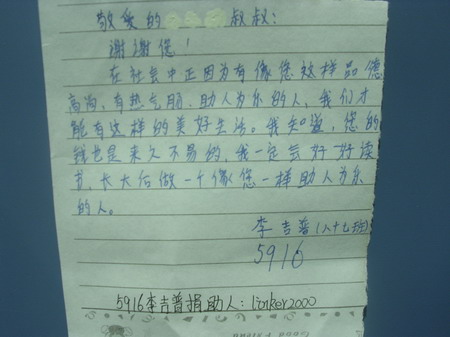 敬爱的 叔叔:
谢谢您!
在社会中正因为有像您这样品德
高尚、有热气肠、助人为乐的人,我们才
能有这样的美好生活。我知道,您的
钱也是来之不易的,我一定会好好读
书,长大后做一个像您一样助人为乐
的人。
李吉普(八十七班)
5916
5916李吉普捐助人:linker2000
Good Friend